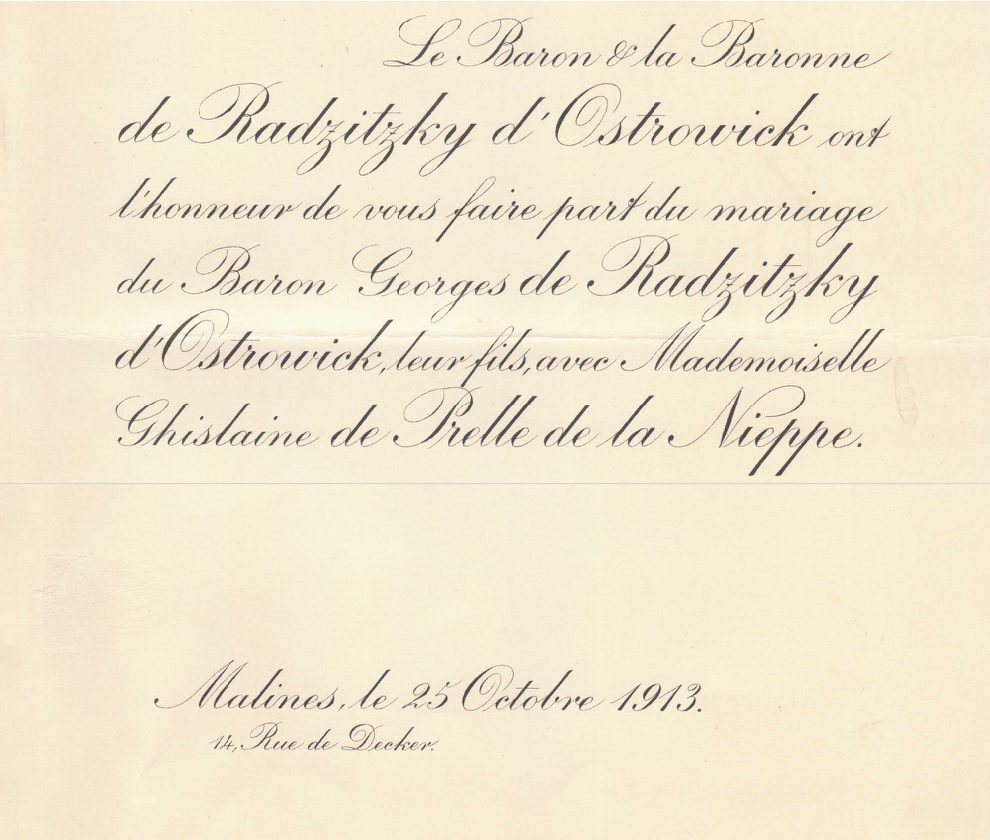 Le Baron & la Baronne
de Radzitzky d'Ostrowick ont
l'honneur de vous faire part du mariage
du Baron Georges de Radzitzky
d'Ostrowick, leur fils, avec Mademoiselle
Ghislaine de Prelle de la Nieppe.
Malines, le 25 Octobre 1913.
14, Rue de Decker.